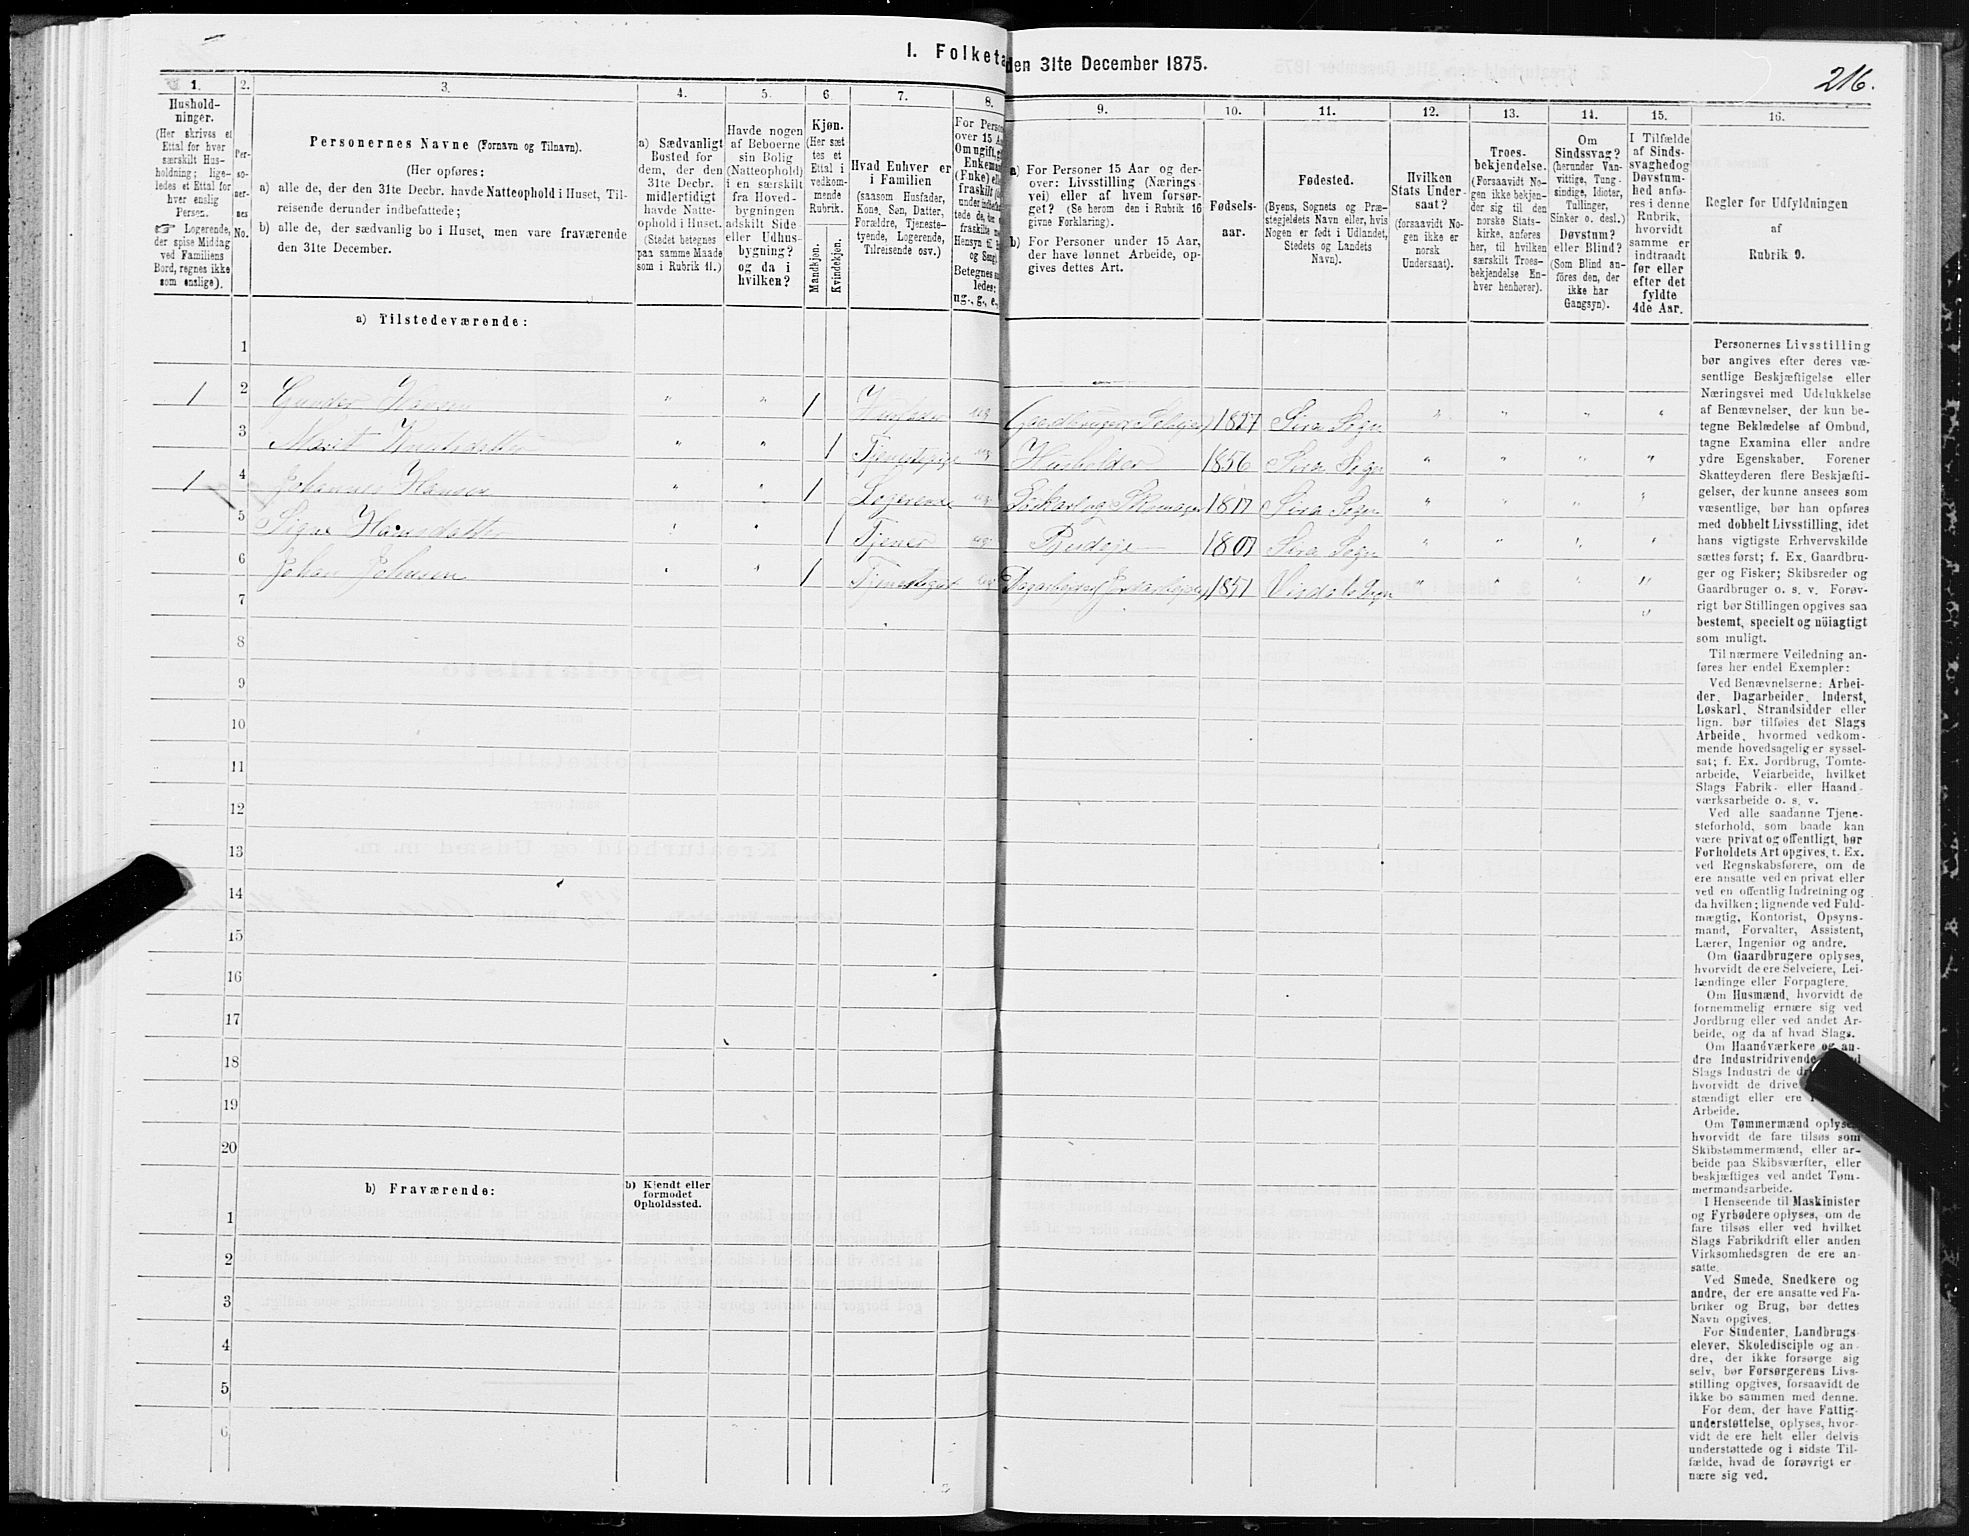 I. Folketa
den 31te December 1875.
216.
1.
Hushold-
ninger.
(Her skrives et
Ettal for hver
særskilt Hus-
holdning; lige-
ledes et Ettal for
hver enslig
Person.
☞ Logerende,
der spise Middag
ved Familiens
Bord, regnes ikke
som enslige).
2.
Per-
so-
ner-
nes
No.
3.
Personernes Navne (Fornavn og Tilnavn).
(Her opføres:
a) alle de, der den 31te Decbr. havde Natteophold i Huset, Til-
reisende derunder indbefattede;
b) alle de, der sædvanlig bo i Huset, men vare fraværende
den 31te December.
4.
a) Sædvanligt
Bosted for
dem, der den
31te Decbr.
midlertidigt
havde Natte-
ophold i Huset.
(Stedet betegnes
paa samme Maade
som i Rubrik 11.)
5.
Havde nogen
af Beboerne
sin Bolig
(Natteophold)
i en særskilt
fra Hoved-
bygningen
adskilt Side
eller Udhus-
bygning?
og da i
hvilken?
6.
Kjøn.
(Her sæt
tes et
Ettal i
vedkom-
mende
Rubrik.
Mandkjøn.
Kvindekjøn.
7.
Hvad Enhver er
i Familien
(saasom Husfader,
Kone, Søn, Datter,
Forældre, Tjeneste-
tyende, Logerende,
Tilreisende osv.)
8.
For Person
over 15 Aa
Om ugift, g
Enkeman
(Fnke) elle
fraskilt
ledes:
ug., g., e.,
9.
a) For Personer 15 Aar og der-
over: Livsstilling (Nærings-
vei) eller af hvem forsør-
get? (Se herom den i Rubrik 16
givne Forklaring).
b) For Personer under 15 Aar,
der have lønnet Arbeide, op-
gives dettes Art.
10.
Fødsels-
aar.
11.
Fødested.
(Byens, Sognets og Præ-
stegjeldets Navn eller, hvis
Nogen er født i Udlandet,
Stedets og Landets
Navn).
12.
Hvilken
Stats Under-
saat?
(forsaavidt No-
gen ikke er
norsk
Undersaat).
13.
Troes-
bekjendelse.
(Forsaavidt No-
gen ikke bekjen-
der sig til den
norske Stats-
kirke, anføres
her, til hvilken
særskilt Troes-
bekjendelse En-
hver henhører).
14.
Om
Sindssvag?
(herunder Van-
vittige, Tung-
sindige, Idioter,
Tullinger,
Sinker o. desl.)
Døvstum?
eller Blind?
(Som Blind an-
föres den, der
ikke har
Gangsyn).
15.
I Tilfælde
af Sinds-
svaghed og
Døvstum-
hed anfø-
res i denne
Rubrik,
hvorvidt
samme er
indtraadt
før eller
efter det
fyldte
4de Aar.
16.
Regler for Udfyldningen
af
Rubrik 9.
a) Tilstedeværende:
1
1 2 Gunder Hansen " " 1 Husfader ug Gaardbruger Selveier 1827 Sira Sogn " " " "
3 Marit Knutsdatter " " 1 Tjenestepige ug Husholder 1856 Sira Sogn " " " "
1 4 Johannes Hansen " " 1 Logerende ug Løskarl og Skomager 1817 Sira Sogn " " " "
5 Signe Hansdatter " " 1 Tjener ug 1807 Sira Sogn " " " "
6 Johan Johnsen " " 1 Tjenestegut ug Dagarbeider 1857 " " " "
7 "
8
9
10
11
12
13
14
15
16
17
18
19
20
b) Fraværende:
b) Kjendt eller
formodet
Opholdssted.
1
2
3
4
5
6
Personernes Livsstilling
bør angives efter deres væ-
sentlige Beskjæftigelse eller
Næringsvei med Udelukkelse
af Benævnelser, der kun be-
tegne Beklædelse af Ombud,
tagne Examina eller andre
ydre Egenskaber. Forener
Skatteyderen flere Beskjæfti-
gelser, der kunne ansees som
væsentlige, bør han opføres
med dobbelt Livsstilling, idet
hans vigtigste Erhvervskilde
sættes først; f. Ex. Gaardbru-
ger og Fisker; Skibsreder og
Gaardbruger o. s. v. Forøv-
rigt bør Stillingen opgives saa
bestemt, specielt og nöiagtigt
som muligt.
Til nærmere Veiledning an-
føres her endel Exempler:
Ved Benævnelserne: Arbei-
der, Dagarbeider, Inderst,
Løskarl, Strandsidder eller
lign. bør tilføies det Slags
Arbeide, hvormed vedkom-
mende hovedsagelig er syssel-
sat; f. Ex. Jordbrug, Tomte-
arbeide, Veiarbeide, hvilket
Slags Fabrik- eller Haand-
værksarbeide o. s. v.
Ved alle saadanne Tjene-
steforhold, som baade kan
være privat og offentligt, bør
Forholdets Art opgives, t. Ex.
ved Regnskabsførere, om de
ere ansatte ved en privat eller
ved en offentlig Indretning og
da hvilken; lignende ved Fuld-
mægtig, Kontorist, Opsyns-
mand, Forvalter, Assistent,
Lærer, Ingeniør og andre.
Om Gaardbrugere oplyses,
hvorvidt de ere Selveiere, Lei-
lændinge eller Forpagtere.
Om Husmænd, hvorvidt de
fornemmelig ernære sig ved
Jordbrug eller ved andet Ar-
beide, og da af hvad Slags.
Om Haandværkere og an-
dre Industridrivende
Slags Industri de
hvorvidt de drive
stændigt eller ere
Arbeide.
Om Tømmermænd oplyses,
hvorvidt de fare tilsøs som
Skibstømmermænd, eller ar-
beide paa Skibsværfter, eller
beskjæftiges ved andet Tøm-
mermandsarbeide.
I Henseende til Maskinister
og Fyrbødere oplyses, om de
fare tilsøs eller ved hvilket
Slags Fabrikdrift eller anden
Virksomhedsgren de ere an-
satte.
Ved Smede, Snedkere og
andre, der ere ansatte ved Fa-
briker og Brug, bør dettes
Navn opgives.
For Studenter, Landbrugs-
elever, Skoledisciple og an-
dre, der ikke forsørge sig
selv, bør Forsørgerens Livs-
stilling opgives, forsaavidt de
ikke bo sammen med denne.
For dem, der have Fattig-
understøttelse, oplyses, hvor-
vidt de ere helt eller delvis
understøttede og i sidste Til-
fælde, hvad de forøvrigt er
nære sig ved.